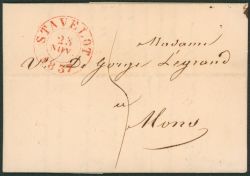 STAVELOT
25
NOV
1837
Madame
Vve De Gorge Legrand
à
Mons